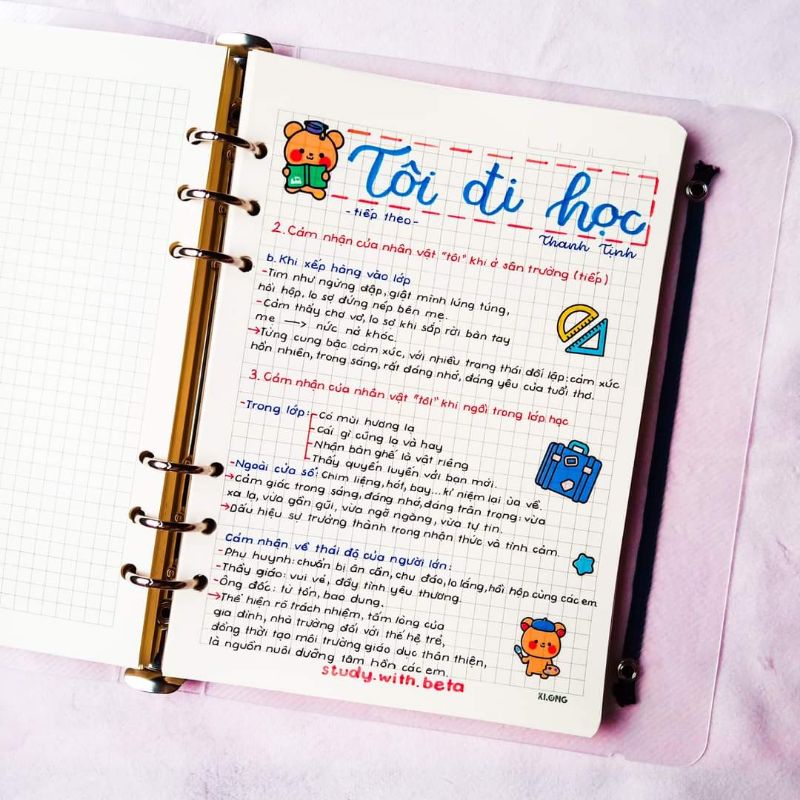 Tôi đi học
- tiếp theo -
Thanh Tịnh
2. Cảm nhận của nhân vật "tôi" khi ở sân trường (tiếp)
b. Khi xếp hàng vào lớp
- Tim như ngừng đập, giật mình lúng túng,
hồi hộp, lo sợ đứng nép bên mẹ.
- Cảm thấy chơ vơ, lo sợ khi sắp rời bàn tay
mẹ → nức nở khóc.
→ Từng cung bậc cảm xúc, với nhiều trạng thái đối lập: cảm xúc
hồn nhiên, trong sáng, rất đáng nhớ, đáng yêu của tuổi thơ.
3. Cảm nhận của nhân vật "tôi" khi ngồi trong lớp học
- Trong lớp: - Có mùi hương lạ
- Cái gì cũng lạ và hay
- Nhận bàn ghế là vật riêng
- Thấy quyến luyến với bạn mới.
- Ngoài cửa sổ: Chim liệng, hót, bay... kỉ niệm lại ùa về.
→ Cảm giác trong sáng, đáng nhớ, đáng trân trọng: vừa
xa lạ, vừa gần gũi, vừa ngỡ ngàng, vừa tự tin.
→ Dấu hiệu sự trưởng thành trong nhận thức và tình cảm.
Cảm nhận về thái độ của người lớn:
- Phụ huynh: chuẩn bị ân cần, chu đáo, lo lắng, hồi hộp cùng các em
- Thầy giáo: vui vẻ, đầy tình yêu thương.
- Ông đốc: từ tốn, bao dung.
→ Thể hiện rõ trách nhiệm, tấm lòng của
gia đình, nhà trường đối với thế hệ trẻ,
đồng thời tạo môi trường giáo dục thân thiện,
là nguồn nuôi dưỡng tâm hồn các em.
study.with.beta
XI.ONG